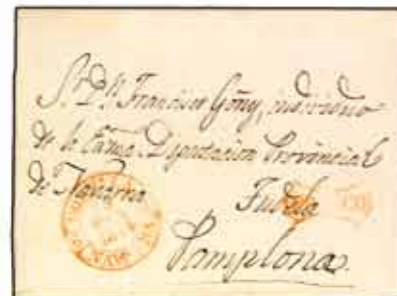 Sr. Dn. Francisco Goñy, individuo
de la Exma. Diputacion Provincial
de Navarra Tudela
Pamplona.